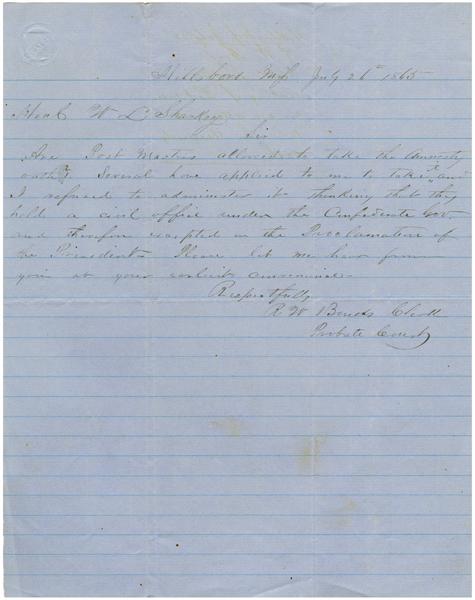 Hillsboro Miss July 26th 1865
Hon W L Sharkey
Sir
Are Post Masters allowed to take the Amnesty
oath? Several have applied to me to take it and
I refused to administer it thinking that they
held a civil office under the Confederate Gov
and therefore excepted in the Proclamation of
the President. Please let me hear from
you at your earliest convenience.
Respectfully
R W Clerk
Probate Court